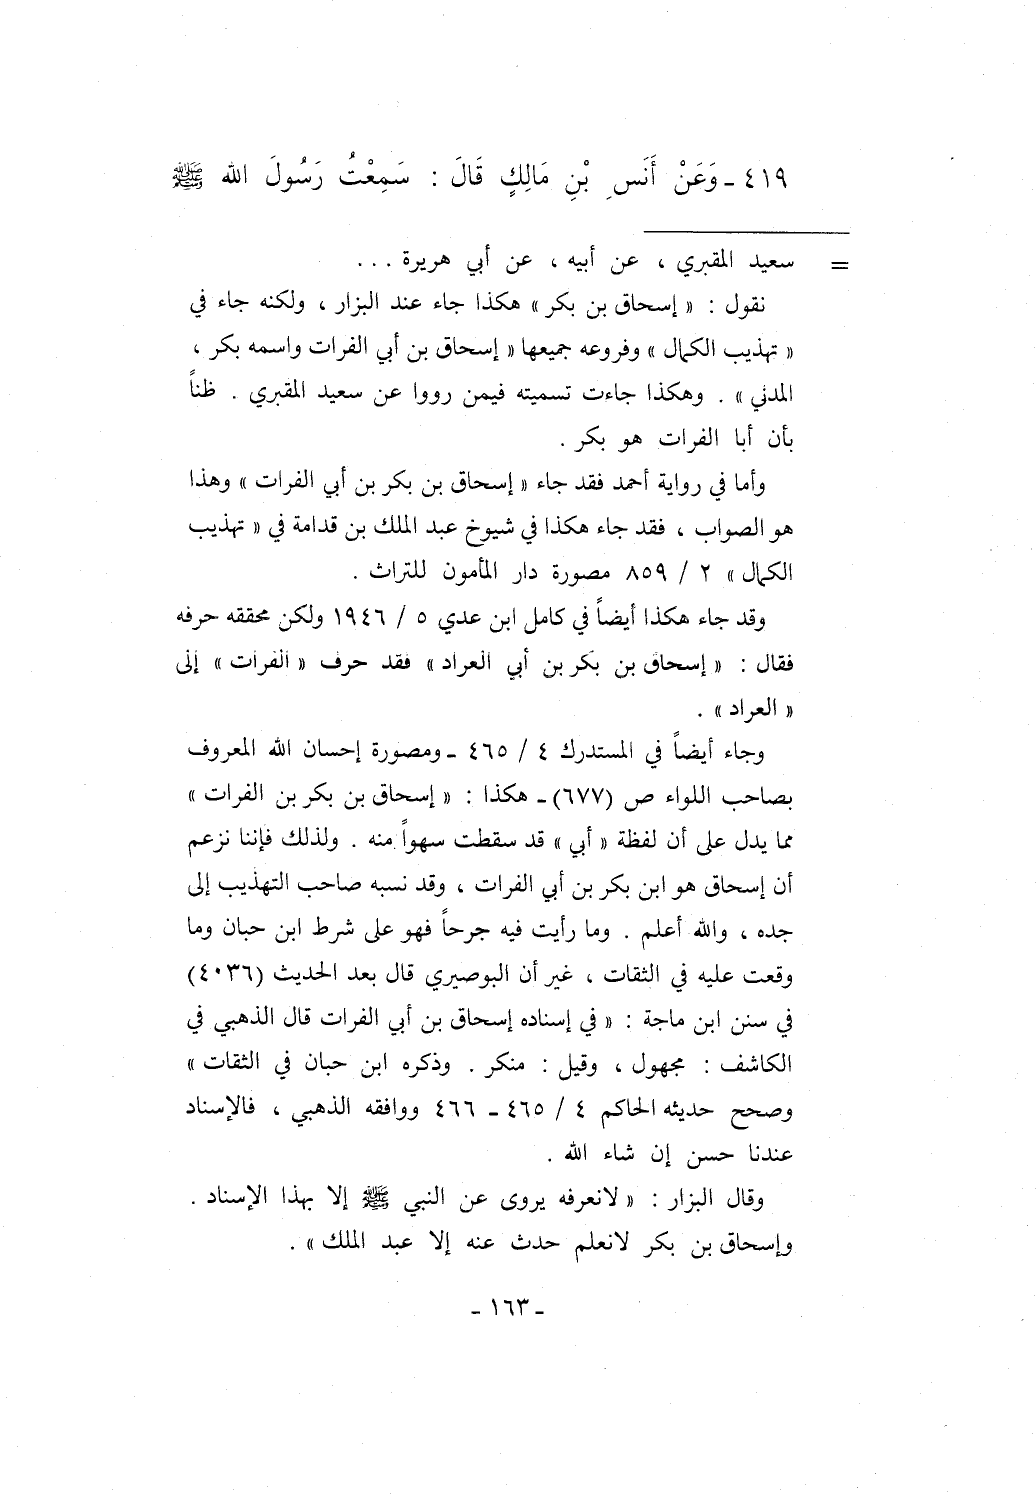 ٤١٩ ـ وَعَنْ أَنَسِ بْنِ مَالِكٍ قَالَ : سَمِعْتُ رَسُولَ الله ﷺ
= سعيد المقبري ، عن أبيه ، عن أبي هريرة . . .
نقول : « إسحاق بن بكر » هكذا جاء عند البزار ، ولكنه جاء في
« تهذيب الكمال » وفروعه جميعها « إسحاق بن أبي الفرات واسمه بكر ،
المدني » . وهكذا جاءت تسميته فيمن رووا عن سعيد المقبري . ظناً
بأن أبا الفرات هو بكر .
وأما في رواية أحمد فقد جاء « إسحاق بن بكر بن أبي الفرات » وهذا
هو الصواب ، فقد جاء هكذا في شيوخ عبد الملك بن قدامة في « تهذيب
الكمال » ٢ / ٨٥٩ مصورة دار المأمون للتراث .
وقد جاء هكذا أيضاً في كامل ابن عدي ٥ / ١٩٤٦ ولكن محققه حرفه
فقال : « إسحاق بن بكر بن أبي العراد » فقد حرف « الفرات » إلى
« العراد » .
وجاء أيضاً في المستدرك ٤ / ٤٦٥ ـ ومصورة إحسان الله المعروف
بصاحب اللواء ص (٦٧٧) ـ هكذا : « إسحاق بن بكر بن الفرات »
مما يدل على أن لفظة « أبي » قد سقطت سهواً منه . ولذلك فإننا نزعم
أن إسحاق هو ابن بكر بن أبي الفرات ، وقد نسبه صاحب التهذيب إلى
جده ، والله أعلم . وما رأيت فيه جرحاً فهو على شرط ابن حبان وما
وقعت عليه في الثقات ، غير أن البوصيري قال بعد الحديث (٤٠٣٦)
في سنن ابن ماجة : « في إسناده إسحاق بن أبي الفرات قال الذهبي في
الكاشف : مجهول ، وقيل : منكر . وذكره ابن حبان في الثقات »
وصحح حديثه الحاكم ٤ / ٤٦٥ ـ ٤٦٦ ووافقه الذهبي ، فالإسناد
عندنا حسن إن شاء الله .
وقال البزار : « لانعرفه يروى عن النبي ﷺ إلا بهذا الإسناد .
وإسحاق بن بكر لانعلم حدث عنه إلا عبد الملك » .
ـ ١٦٣ ـ